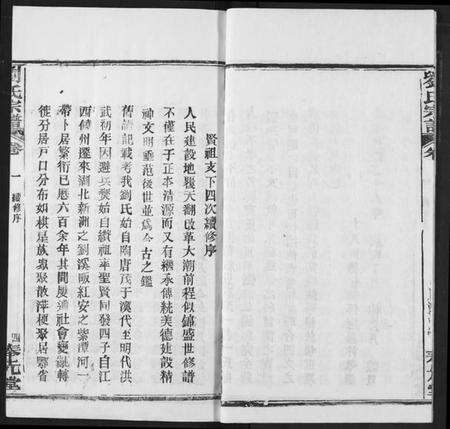 劉氏宗譜
卷
賢祖支下四次續修序
人民建設地覆天翻改革大潮前程似錦盛世修譜
不僅在于正本清源而又有繼承傳統美德建設精
神文明垂范後世並爲今古之鑑
舊譜記載考我劉氏始自陶唐茂于漢代至明代洪
武初年因避項夔始自續祖率聖賢同發四子自江
西饒州遷來湖北新洲之劉溪畈紅安之紫潭河一
帶卜居繁衍已歷六百余年其間屢遭社會變亂轉
徙分居戶口分布如棋星族衆聚散萍梗聚居鄂省
劉氏宗譜
卷一
續修序
四
奉先堂